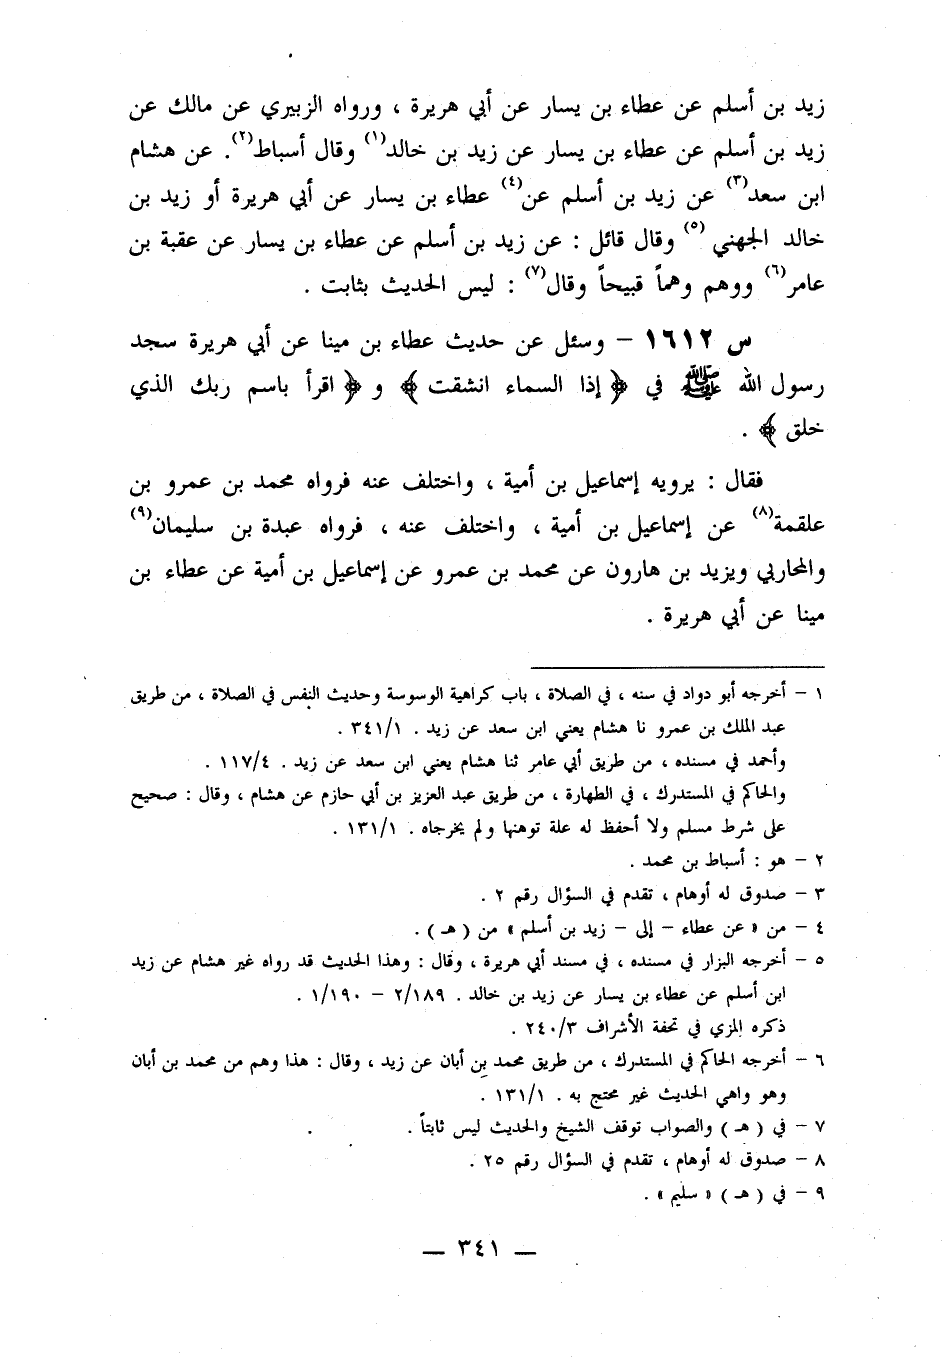 زيد بن أسلم عن عطاء بن يسار عن أبي هريرة ، ورواه الزبيري عن مالك عن
زيد بن أسلم عن عطاء بن يسار عن زيد بن خالد(١) وقال أسباط(٢). عن هشام
ابن سعد(٣) عن زيد بن أسلم عن(٤) عطاء بن يسار عن أبي هريرة أو زيد بن
خالد الجهني(٥) وقال قائل : عن زيد بن أسلم عن عطاء بن يسار عن عقبة بن
عامر(٦) ووهم وهماً قبيحاً وقال(٧) : ليس الحديث بثابت .
س ١٦١٢ – وسئل عن حديث عطاء بن مينا عن أبي هريرة سجد
رسول الله ﷺ في ﴿ إذا السماء انشقت ﴾ و ﴿ اقرأ باسم ربك الذي
خلق ﴾ .
فقال : يرويه إسماعيل بن أمية ، واختلف عنه فرواه محمد بن عمرو بن
علقمة(٨) عن إسماعيل بن أمية ، واختلف عنه ، فرواه عبدة بن سليمان(٩)
والمحاربي ويزيد بن هارون عن محمد بن عمرو عن إسماعيل بن أمية عن عطاء بن
مينا عن أبي هريرة .
١ – أخرجه أبو دواد في سنه ، في الصلاة ، باب كراهية الوسوسة وحديث النفس في الصلاة ، من طريق
عبد الملك بن عمرو نا هشام يعني ابن سعد عن زيد . ٣٤١/١ .
وأحمد في مسنده ، من طريق أبي عامر ثنا هشام يعني ابن سعد عن زيد . ١١٧/٤ .
والحاكم في المستدرك ، في الطهارة ، من طريق عبد العزيز بن أبي حازم عن هشام ، وقال : صحيح
على شرط مسلم ولا أحفظ له علة توهنها ولم يخرجاه . ١٣١/١ .
٢ – هو : أسباط بن محمد .
٣ – صدوق له أوهام ، تقدم في السؤال رقم ٢ .
٤ – من « عن عطاء – إلى – زيد بن أسلم » من ( هـ ) .
٥ – أخرجه البزار في مسنده ، في مسند أبي هريرة ، وقال : وهذا الحديث قد رواه غير هشام عن زيد
ابن أسلم عن عطاء بن يسار عن زيد بن خالد . ٢/١٨٩ – ١/١٩٠ .
ذكره المزي في تحفة الأشراف ٢٤٠/٣ .
٦ – أخرجه الحاكم في المستدرك ، من طريق محمد بن أبان عن زيد ، وقال : هذا وهم من محمد بن أبان
وهو واهي الحديث غير محتج به . ١٣١/١ .
٧ – في ( هـ ) والصواب توقف الشيخ والحديث ليس ثابتاً .
٨ – صدوق له أوهام ، تقدم في السؤال رقم ٢٥ .
٩ – في ( هـ ) « سليم » .
— ٣٤١ —